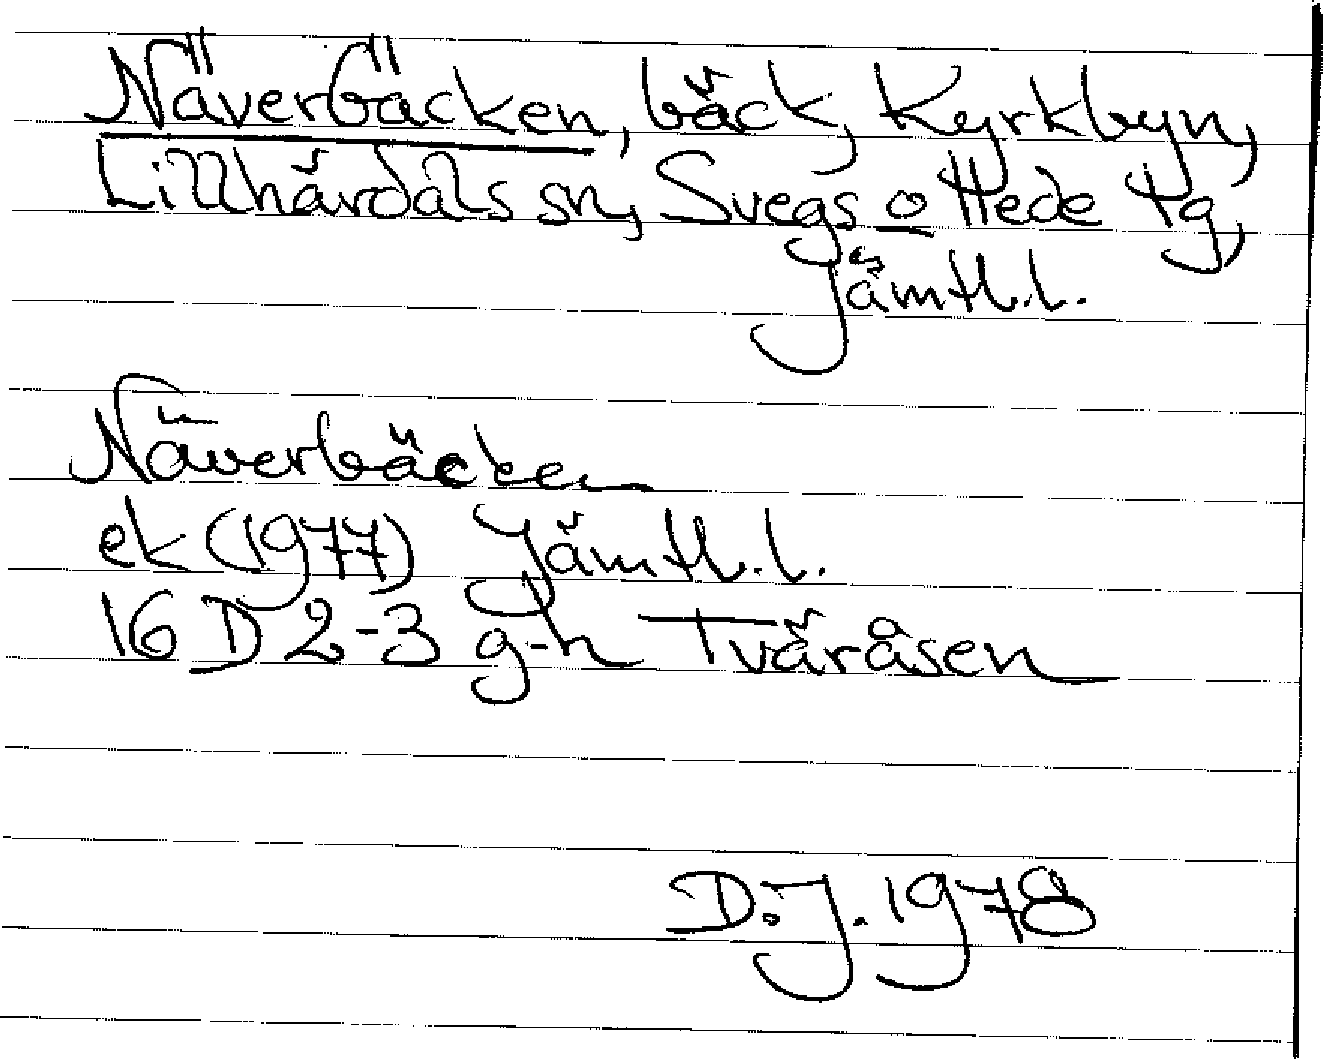 Näverbäcken, bäck, Kyrkbyn,
Lillhärdals sn, Svegs o Hede tg,
Jämtl.l.
Näverbäcken
ek (1977) Jämtl.l.
16 D 2-3 g-h Tväråsen
D.J. 1978